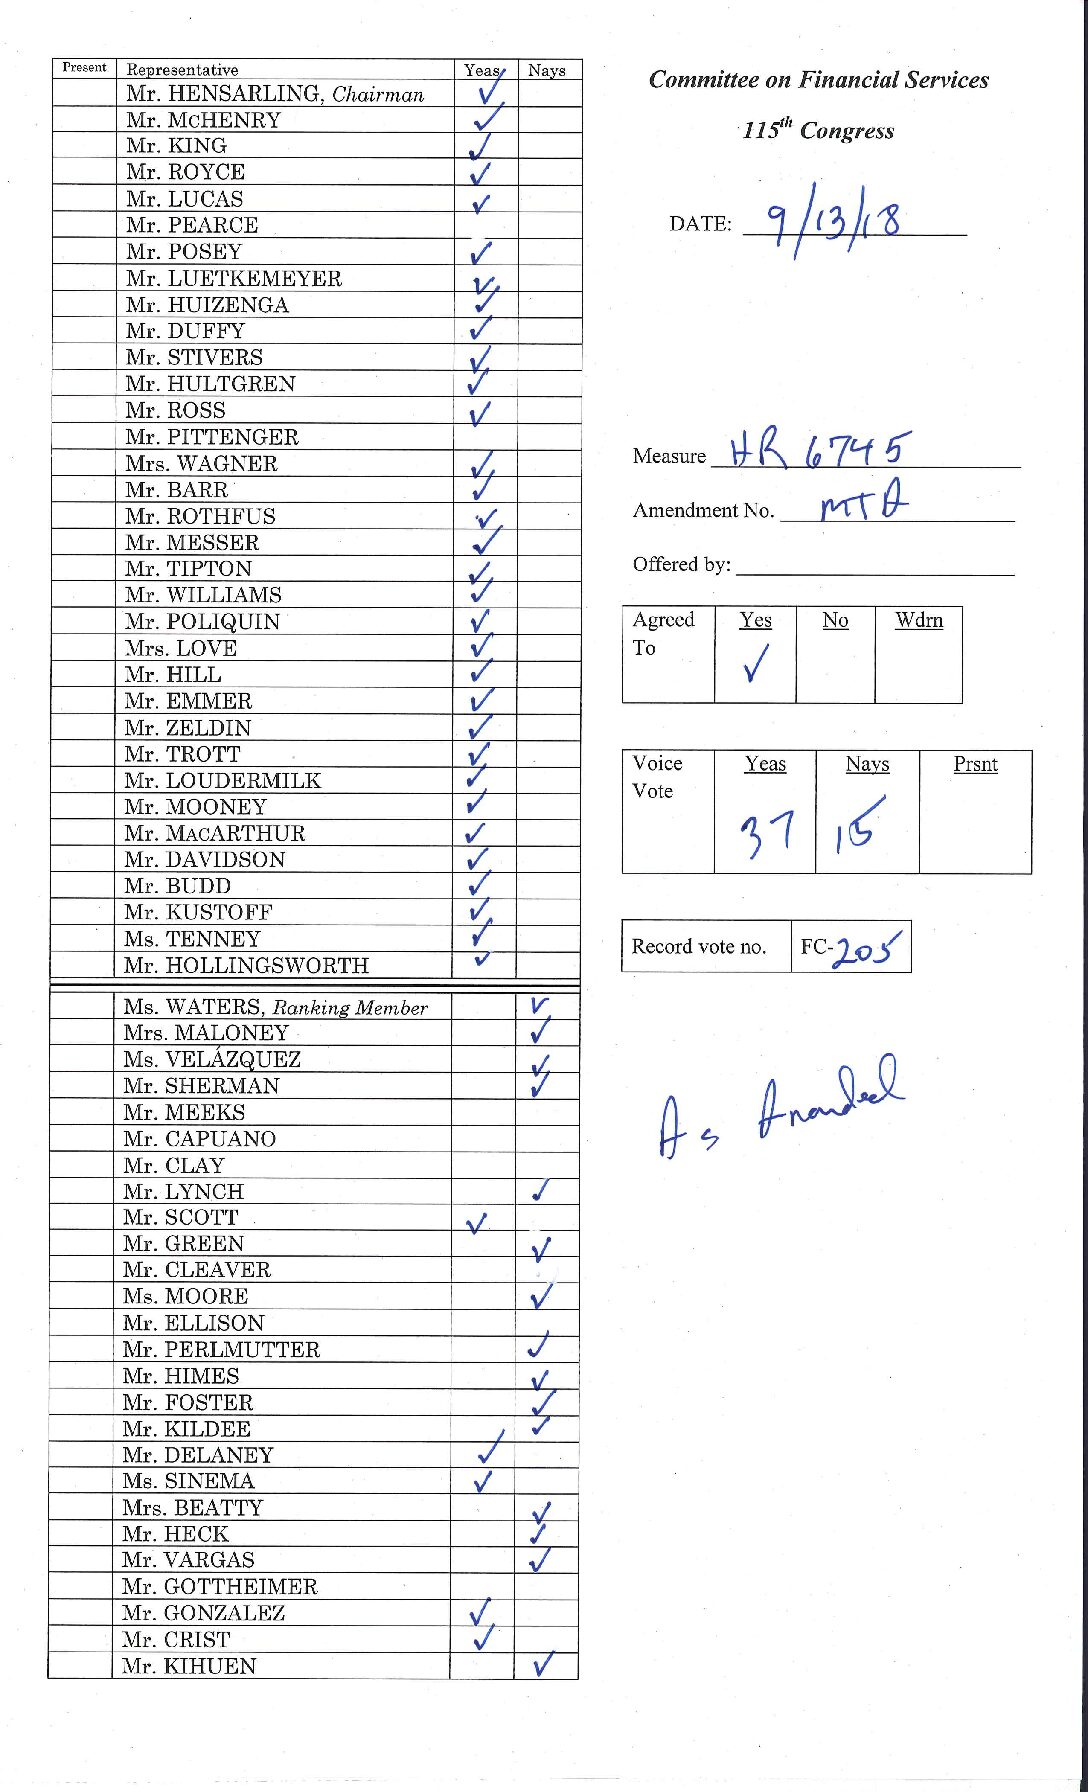 Present Representative Yeas Nays
Mr. HENSARLING, Chairman ✓
Mr. McHENRY ✓
Mr. KING ✓
Mr. ROYCE ✓
Mr. LUCAS ✓
Mr. PEARCE
Mr. POSEY ✓
Mr. LUETKEMEYER ✓
Mr. HUIZENGA ✓
Mr. DUFFY ✓
Mr. STIVERS ✓
Mr. HULTGREN ✓
Mr. ROSS ✓
Mr. PITTENGER
Mrs. WAGNER ✓
Mr. BARR ✓
Mr. ROTHFUS ✓
Mr. MESSER ✓
Mr. TIPTON ✓
Mr. WILLIAMS ✓
Mr. POLIQUIN ✓
Mrs. LOVE ✓
Mr. HILL ✓
Mr. EMMER ✓
Mr. ZELDIN ✓
Mr. TROTT ✓
Mr. LOUDERMILK ✓
Mr. MOONEY ✓
Mr. MACARTHUR ✓
Mr. DAVIDSON ✓
Mr. BUDD ✓
Mr. KUSTOFF ✓
Ms. TENNEY ✓
Mr. HOLLINGSWORTH ✓
Ms. WATERS, Ranking Member ✓
Mrs. MALONEY ✓
Ms. VELÁZQUEZ ✓
Mr. SHERMAN ✓
Mr. MEEKS
Mr. CAPUANO
Mr. CLAY
Mr. LYNCH ✓
Mr. SCOTT ✓
Mr. GREEN ✓
Mr. CLEAVER
Ms. MOORE ✓
Mr. ELLISON
Mr. PERLMUTTER ✓
Mr. HIMES ✓
Mr. FOSTER ✓
Mr. KILDEE ✓
Mr. DELANEY ✓
Ms. SINEMA ✓
Mrs. BEATTY ✓
Mr. HECK ✓
Mr. VARGAS ✓
Mr. GOTTHEIMER
Mr. GONZALEZ ✓
Mr. CRIST ✓
Mr. KIHUEN ✓
Committee on Financial Services
115th Congress
DATE: 9/13/18
Measure HR 6745
Amendment No. MTA
Offered by:
Agreed Yes No Wdrn
To ✓
Voice Yeas Nays Prsnt
Vote
37 15
Record vote no. FC-205
As Amended